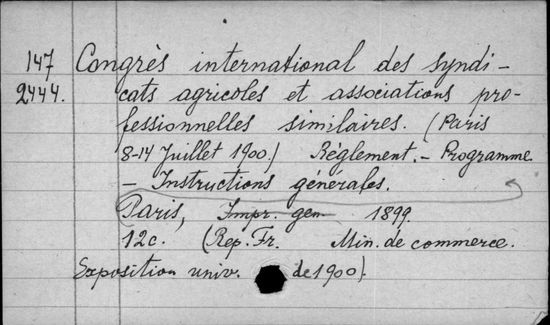 147 Congrès international des syndi-
2444. cats agricoles et associations pro-
fessionnelles similaires. (Paris
8-14 Juillet 1900.) Réglement. - Programme
- Instructions générales.
Paris, Impr. gen 1899.
12c. (Rep. Fr. Min. de commerce.
Exposition univ. de 1900).